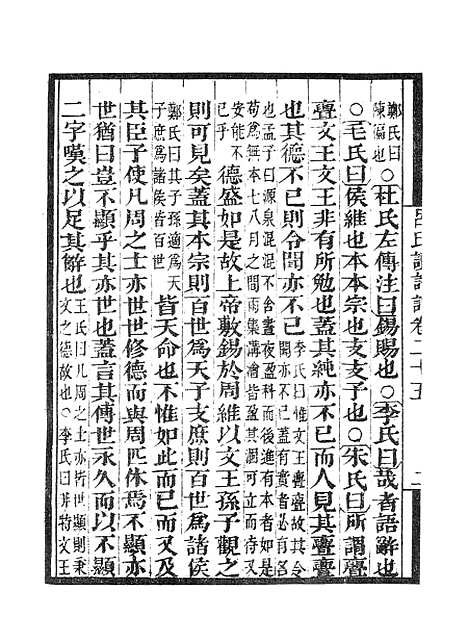 呂氏讀詩記卷二十五
二
鄭氏曰
陳徧也
○杜氏左傳注曰錫賜也○李氏曰哉者語辭也
○毛氏曰侯維也本本宗也支支子也○朱氏曰所謂亹
亹文王文王非有所勉也蓋其純亦不已而人見其亹亹
也其德不已則令聞亦不已
李氏曰惟文王亹亹故其令
聞亦不已蓋有實者必有名
也孟子曰源泉混混不舍晝夜盈科而後進有本者如是
苟爲無本七八月之閒雨集溝澮皆盈其涸可立而待又
安能不
已乎
德盛如是故上帝敷錫於周維以文王孫子觀之
則可見矣蓋其本宗則百世爲天子支庶則百世爲諸侯
鄭氏曰其子孫適爲天
子庶爲諸侯皆百世
皆天命也不惟如此而已而又及
其臣子使凡周之士亦世世修德而與周匹休焉不顯亦
世猶曰豈不顯乎其亦世也蓋言其傳世永久而以不顯
二字嘆之以足其辭也
王氏曰凡周之士亦世顯則秉
文之德故也○李氏曰非特文王